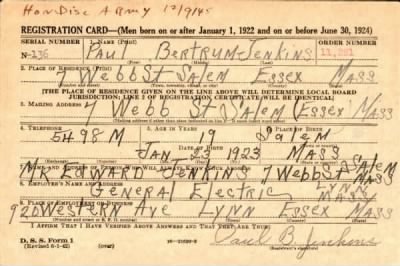 Hon Disc Army 12/9/45
REGISTRATION CARD—(Men born on or after January 1, 1922 and on or before June 30, 1924)
SERIAL NUMBER 1. NAME (Print) ORDER NUMBER
N-136 Paul Bertrum Jenkins
2. PLACE OF RESIDENCE (Print)
7 Webb St Salem Essex Mass
(Number and street) (Town, township, village, or city) (County) (State)
[THE PLACE OF RESIDENCE GIVEN ON THE LINE ABOVE WILL DETERMINE LOCAL BOARD
JURISDICTION; LINE 2 OF REGISTRATION CERTIFICATE WILL BE IDENTICAL]
3. MAILING ADDRESS
7 Webb St Salem Essex Mass
4. TELEPHONE 5. AGE IN YEARS 6. PLACE OF BIRTH
5498M 19 Salem
DATE OF BIRTH
Jan 1923 Mass
Edward Jenkins 7 Webb St Salem
8. EMPLOYER'S NAME AND ADDRESS
General Electric Lynn Mass
920 Western Ave Lynn Essex Mass
(Number and street or R. F. D. number) (Town) (County) (State)
I AFFIRM THAT I HAVE VERIFIED ABOVE ANSWERS AND THAT THEY ARE TRUE.
D. S. S. Form 1
(Revised 6-1-42) Paul B. Jenkins
(Registrant's signature)